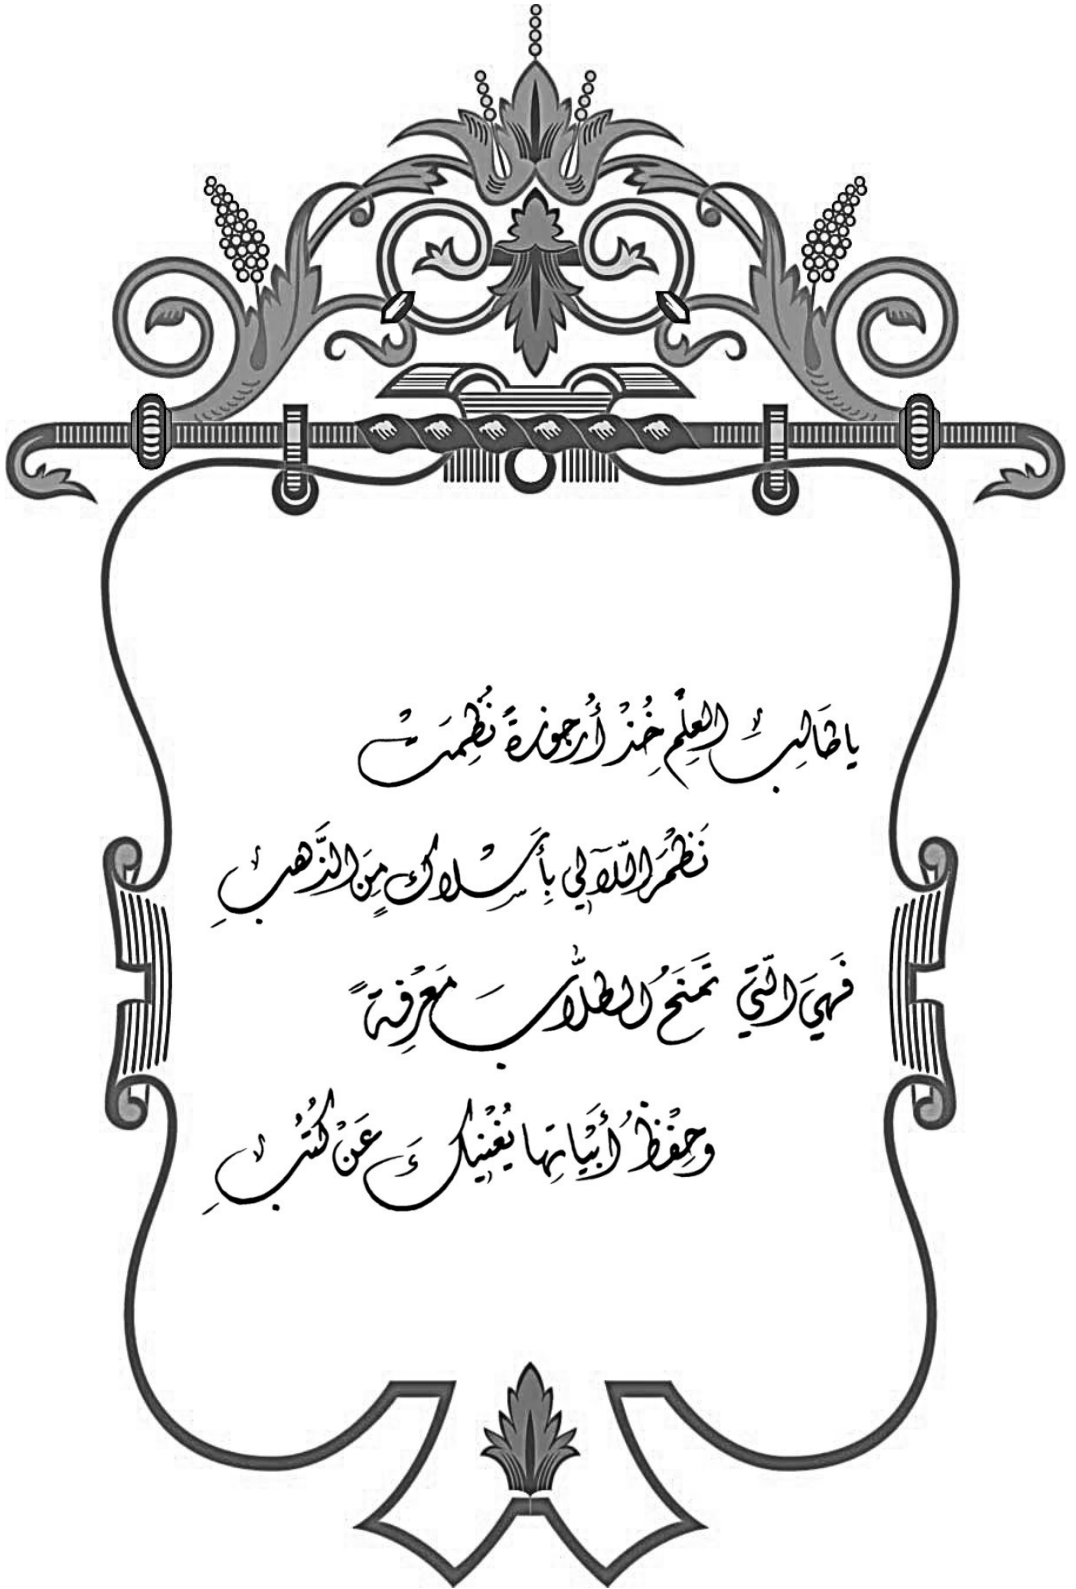 يا طَالِبَ العِلْمِ خُذْ أُرجوزةً نُظِمَتْ
نَظْمَ اللّآلي بِأَسْلاكٍ مِنَ الذَّهبِ
فَهيَ الّتي تَمنَحُ الطلّابَ مَعْرِفةً
وحِفْظُ أَبْيَاتِها يُغْنِيكَ عَنْ كُتُبِ